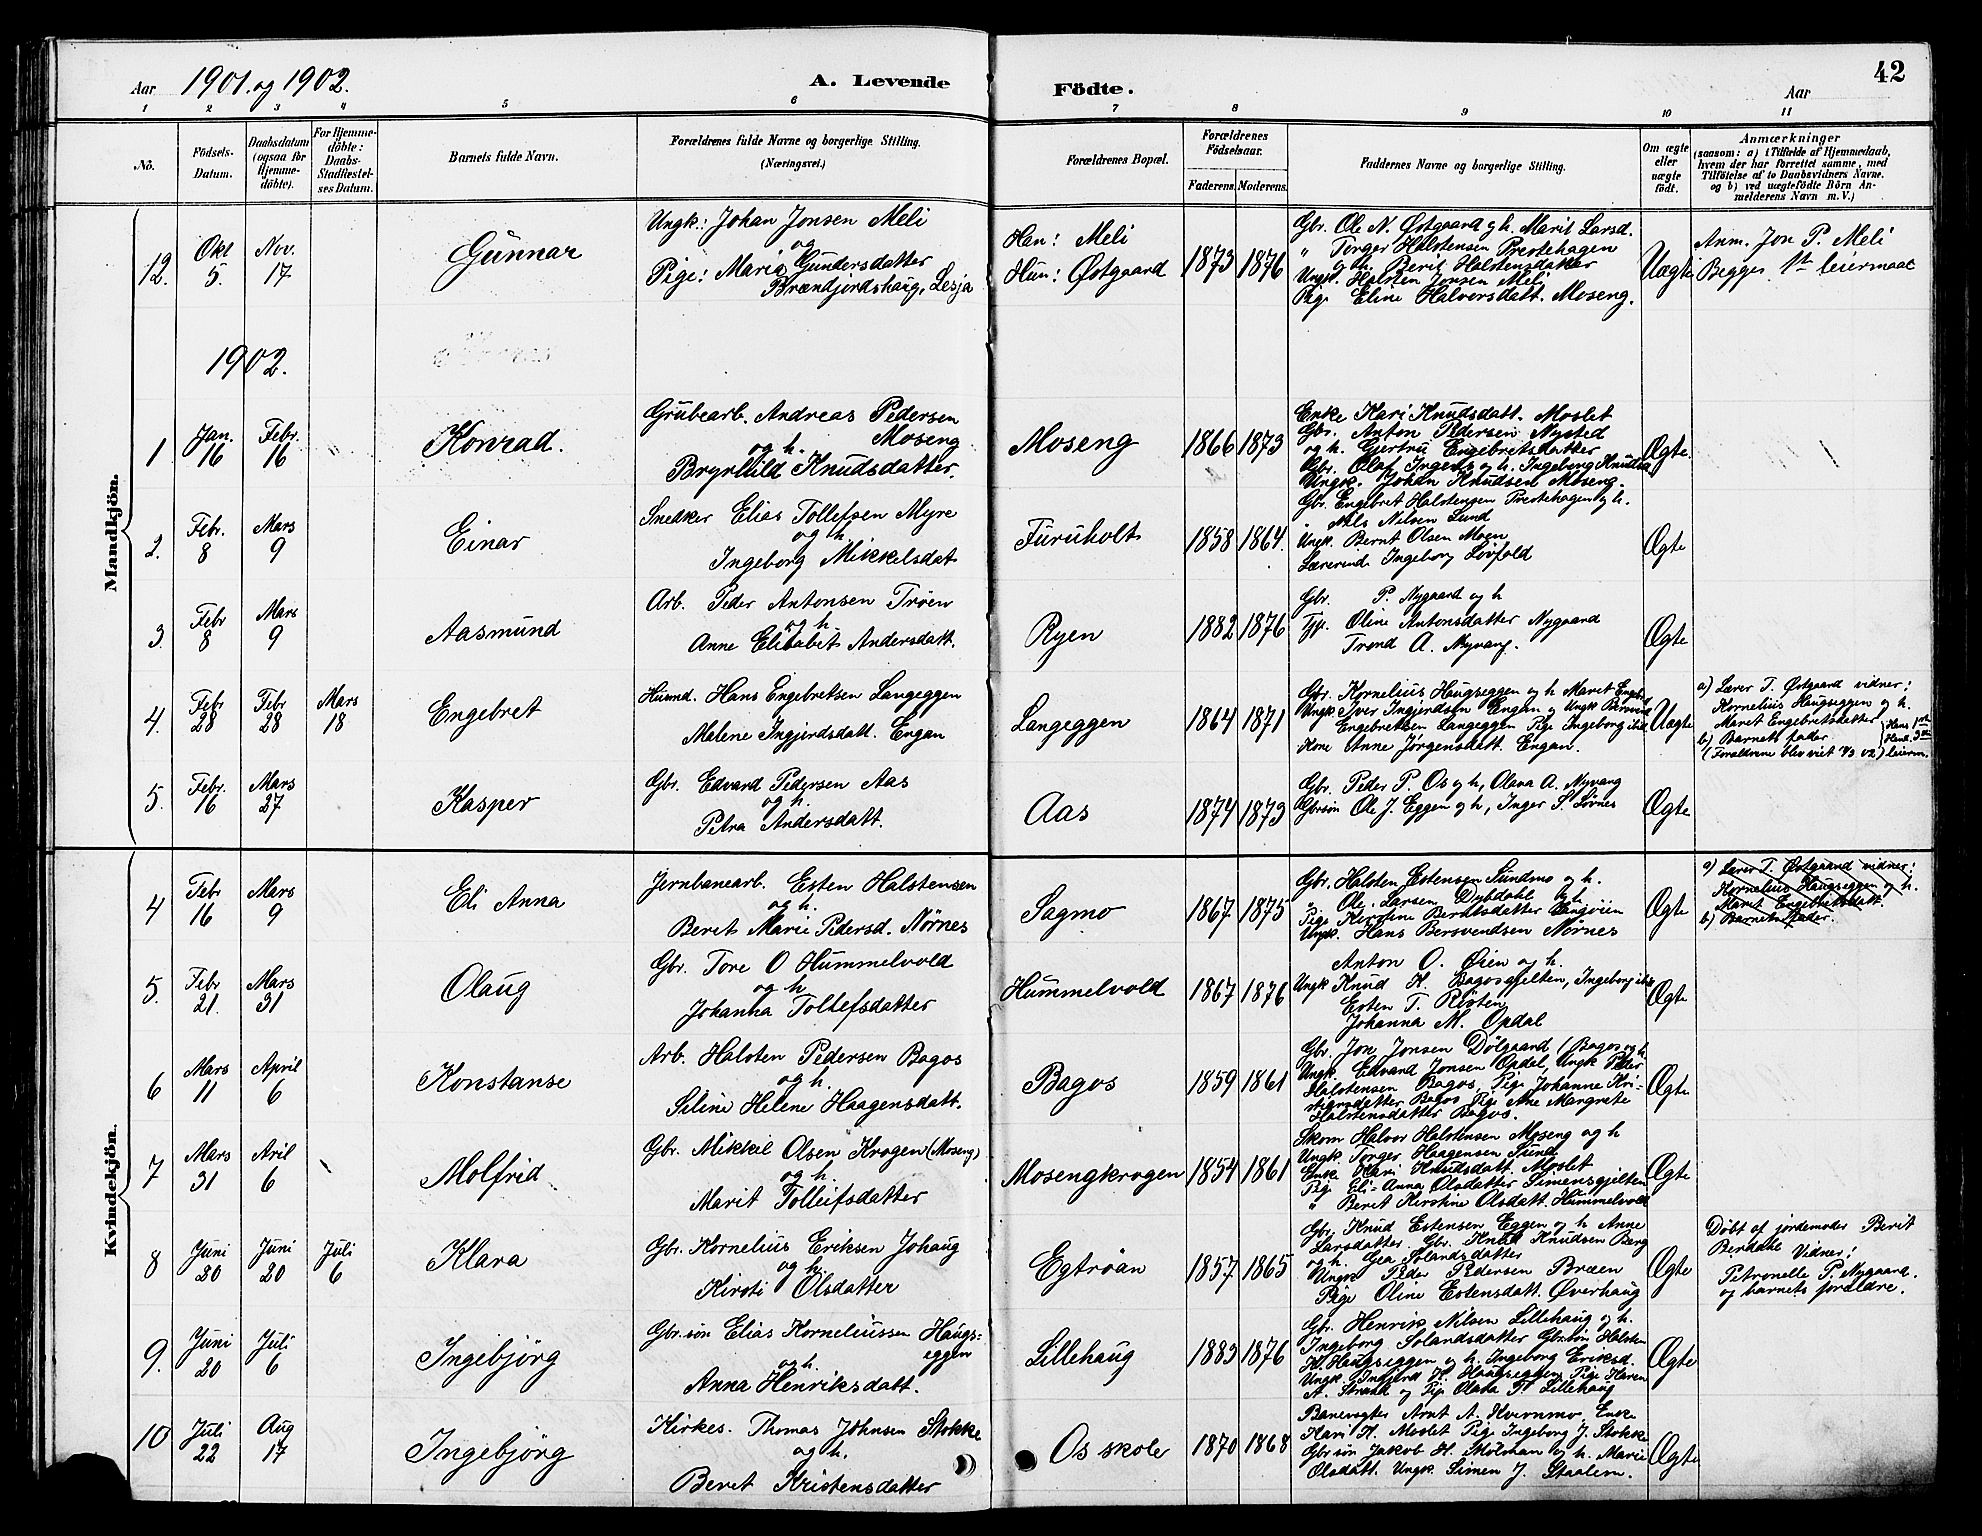 Aar 1901. og 1902. A. Levende Födte. Aar 42
1 2 3 4 5 6 7 8 9 10 11
No.
Födsels-Datum.
Daabsdatum (ogsaa for Hjemme-döbte).
For Hjemme-döbte: Daabs-Stadfæstel-ses Datum.
Barnets fulde Navn.
Forældrenes fulde Navne og borgerlige Stilling. (Næringsvei.)
Forældrenes Bopæl.
Forældrenes Födselsaar.
Faderens. Moderens.
Faddernes Navne og borgerlige Stilling.
Om ægte eller uægte födt.
Anmærkninger
(saasom: a) i Tilfælde af Hjemmedaab,
hvem der har forrettet samme, med
Tilföielse af to Daabsvidners Navne.
og b) ved uægtefödte Börn An-
melderens Navn m. V.)
Mandkjön.
12. Okt 5. Nov. 17 Gunnar
Ungk: Johan Jonsen Meli
og
Pige: Maria Gundersdatter
Brændjordshaug, Lesja
Han: Meli
Hun: Østgaard
1873 1876
Gbr. Ole N. Østgaard og h. Marit Larsd.
" Torger Halstensen Prestehagen
og h. Berit Halstensdatter
Ungk. Halsten Jonsen Meli
Pige Eline Halvorsdatt. Moseng.
Uægte
Anm. Jon P. Meli
Begges 1ste leiermaal
1902.
1 Jan. 16 Febr. 16 Konrad.
Grubearb. Andreas Pedersen
Moseng
og h.
Brynhild Knudsdatter.
Moseng 1866 1873
Enke Kari Knudsdatt. Moslet
Gbr. Anton Pedersen Nysted
og h. Gjertru Engebretsdatter
Gbr. Olaf Ingents og h. Ingeborg Knudsd.
Ungk. Johan Knudsen Moseng.
Ægte.
2. Febr. 8 Mars 9 Einar
Snedker Elias Tollefsen Myre
og h.
Ingeborg Mikkelsdat
Furuholt 1858 1864.
Gbr. Engebret Halstensen Prestehagen og h.
" Nils Nilsen Lund
Ungk. Bernt Olsen Moen
Lærerinde Ingeborg Løvfold
Ægte
3. Febr 8 Mars 9 Aasmund
Arb. Peder Antonsen Trøen
og h
Anne Elisabet Andersdatt.
Ryen 1882 1876
Gbr. P. Nygaard og h
Tjp. Oline Antonsdatter Nygaard
Trond A. Nyvang.
Ægte
4. Febr 28 Febr 28 Mars 18 Engebret
Husmd. Hans Engebretsen Langeggen
Malene Ingjerdsdatt. Engan
Langeggen 1864 1871
Gbr. Kornelius Haugseggen og h Maret Engebr.
Ungk. Iver Ingjerdsen Engan og Ungk Bersvend
Engebretsen Langeggen Pige Ingeborg ibid
Kone Anne Jørgensdatt. Engan.
Uægte
a) Lærer T. Østgaard vidner:
Kornelius Haugseggen og h.
Maret Engebretsdatter
b) Barnets fader
(Forældrene blev viet 4/3 02) leierm.
5. Febr. 16 Mars 27 Kasper
Gbr. Edvard Pedersen Aas
og h.
Petra Andersdatt.
Aas 1874 1873
Gbr. Peder P. Os og h, Olava A. Nyvang
Gbrsøn Ole J. Eggen og h, Inger S. Løvnes
Ægte
Kvindekjön.
4 Febr 16 Mars 9 Eli Anna
Jernbanearb. Esten Halstensen
og h.
Beret Marie Pedersd. Nörnes
Sagmo 1867 1875
Gbr. Halsten Estensen Sundmo og h.
" Ole Larsen Dybdahl og h.
Pige Kirstine Berntsdatter Engøien
Ungk. Hans Bersvendsen Nørnes
Ægte
a) Lærer T. Østgaard vidner:
Kornelius Haugseggen og h.
Maret Engebretsdatt.
b) Barnets fader.
5. Febr 21. Mars 31 Olaug
Gbr. Tore O Hummelvold
og h
Johanna Tollefsdatter
Hummelvold 1867 1876
Anton O. Øien og h.
Ungk Knud H. Bagosgjelten, Ingeborg ibid
Esten T. Røsten
Johanna M. Opdal
Ægte
6 Mars 11 April 6 Konstanse
Arb. Halsten Pedersen Bagos
og h.
Seline Helene Haagensdatt.
Bagos 1859 1861
Gbr. Jon Jonsen Dølgaard (Bagos og h.
Ungk. Edvard Jonsen Opdal, Ungk Peder
Halstensen Bagos, Pige Johanne Kri-
stiansdatter Bagos Pige Ane Margrete
Halstensdatter Bagos.
Ægte
7 Mars 31 Avril 6 Molfrid
Gbr. Mikkel Olsen Krogen (Moseng)
og h.
Marit Tolleifsdatter
Mosengkrogen 1854 1861
Skom Halvor Halstensen Moseng og h
Ungk. Torger Haagensen Sund
Enke Kari Knudsdatt. Moslet
Pige Eli-Anna Olsdatter Simensgjelten
" Beret Kirstine Olsdatt. Hummelvold
Ægte
8 Juni 20 Juni 20 Juli 6 Klara
Gbr. Kornelius Eriksen Johaug
og h.
Kirsti Olsdatter
Egtrøan 1857 1865
Gbr. Knud Estensen Eggen og h Anne
Larsdatter Gbr. Knud Knudsen Berg
og h. Gea Tolandsdatter
Ungk Peder Pedersen Bræen
Pige Oline Estensdatt. Øverhaug
Ægte
Døbt af jordemoder Berit
Berdahl Vidner:
Petronelle P. Nygaard.
og barnets forældre.
9. Juni 20 Juli 6 Ingebjörg
Gbr.søn Elias Korneliussen Haugs-
eggen
og h.
Anna Henriksdatt.
Lillehaug 1883 1876
Gbr. Henrik Nilsen Lillehaug og h.
Ingeborg Tolandsdatter Gbrsøn Halsten
K. Haugseggen og h. Ingeborg Eriksd.
Ungk. Ingjerd K. Haugseggen Pige Karen
A. Strand og Pige Olava H Lillehaug
Ægte
10 Juli 22 Aug 17 Ingebjörg
Kirkes. Thomas Johnsen Stokke
og h.
Beret Kristensdatter
Os skole 1870 1868
Banevogter Arnt A. Kvernmo, Enke
Kari K. Moslet Pige Ingeborg J. Stokke
Gbrsøn Jakob H. Mølman og h. Marie
Olsdatt. Ungk. Simen J. Staalem.
Ægte